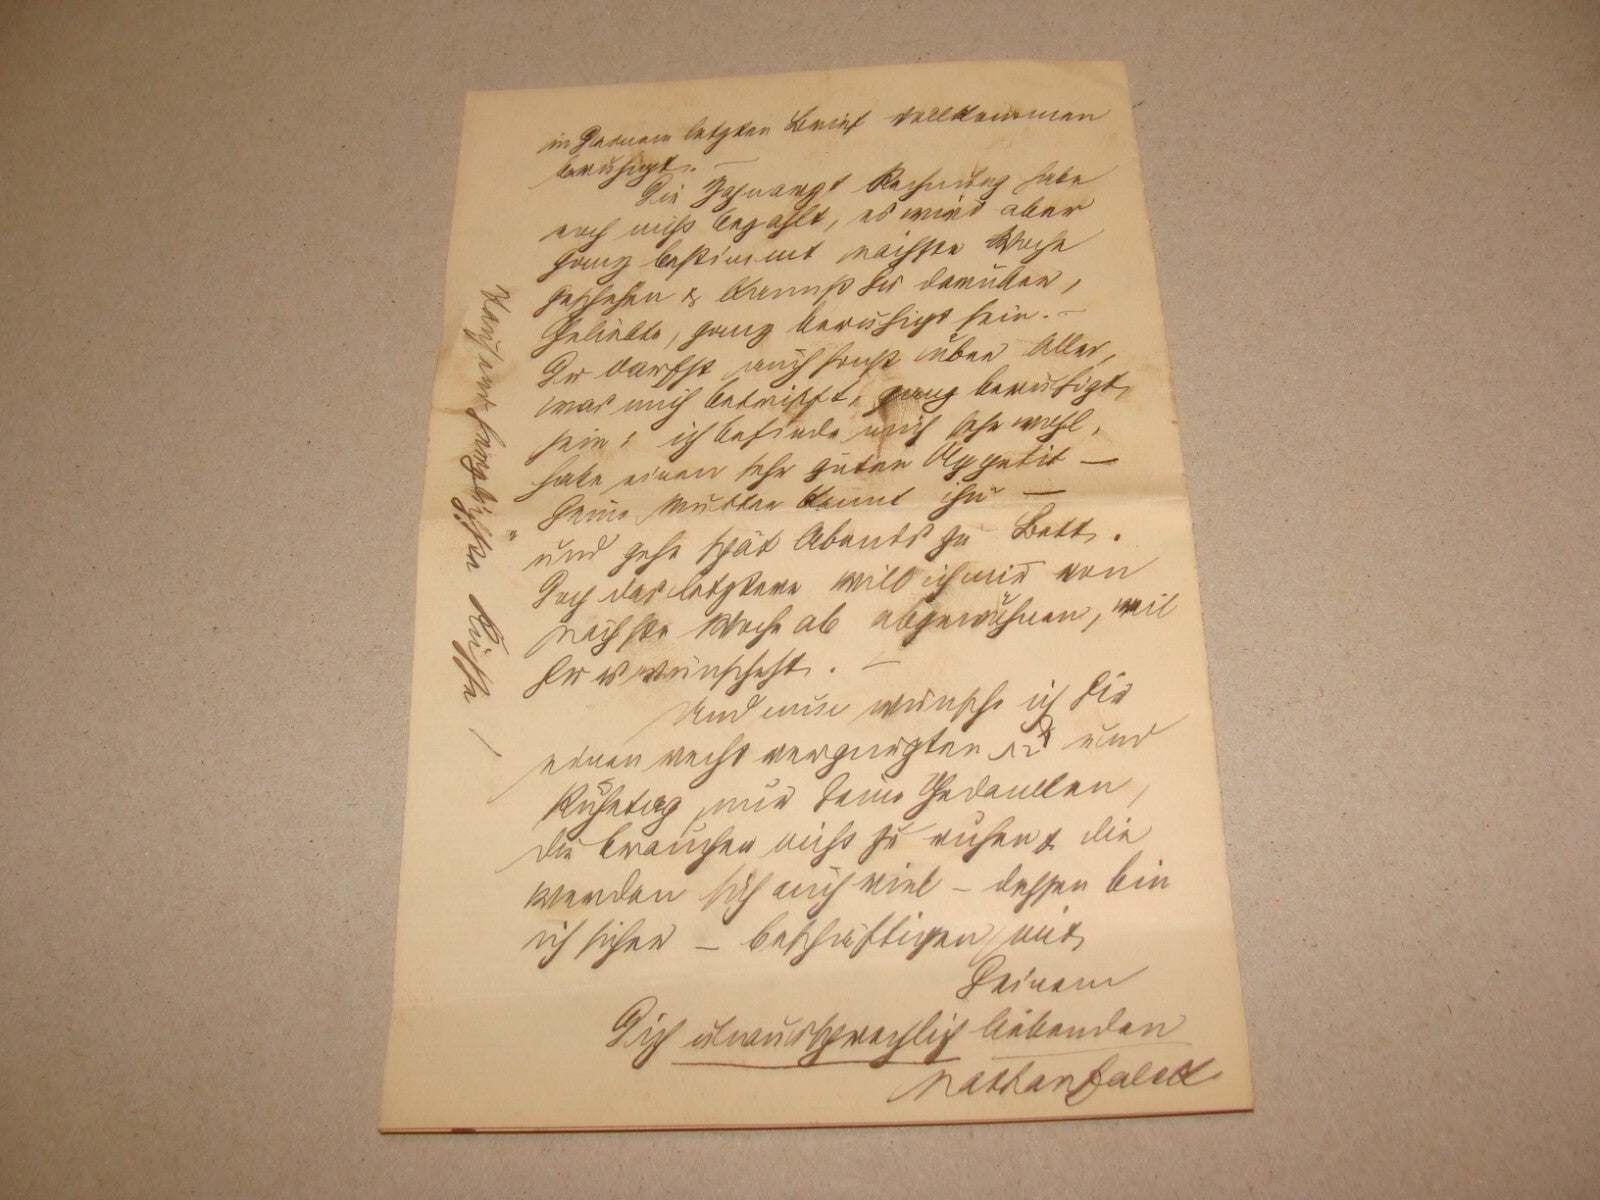 in Deinem letzten Brief vollkommen
beruhigt. —
Die Zahnarzt Rechnung habe
noch nicht bezahlt, es wird aber
ganz bestimmt nächste Woche
geschehen & kannst Du darüber,
Geliebte, ganz beruhigt sein. —
Du darfst auch sonst über Alles,
was mich betrifft, ganz beruhigt
sein; ich befinde mich sehr wohl,
habe einen sehr guten Appetit —
Deine Mutter kennt ihn —
und gehe spät Abends zu Bett.
Doch das letztere will ich mir von
nächste Woche ab abgewöhnen, weil
Du es wünschest. —
Und nun wünsche ich Dir
einen recht vergnügten und
Ruhetag, nur Deine Gedanken,
die brauchen nicht zu ruhen & die
werden sich auch viel — dessen bin
ich sicher — beschäftigen mit
Deinem
Dich unaussprechlich liebenden
Nathan Falck
herzlichsten Küsse!